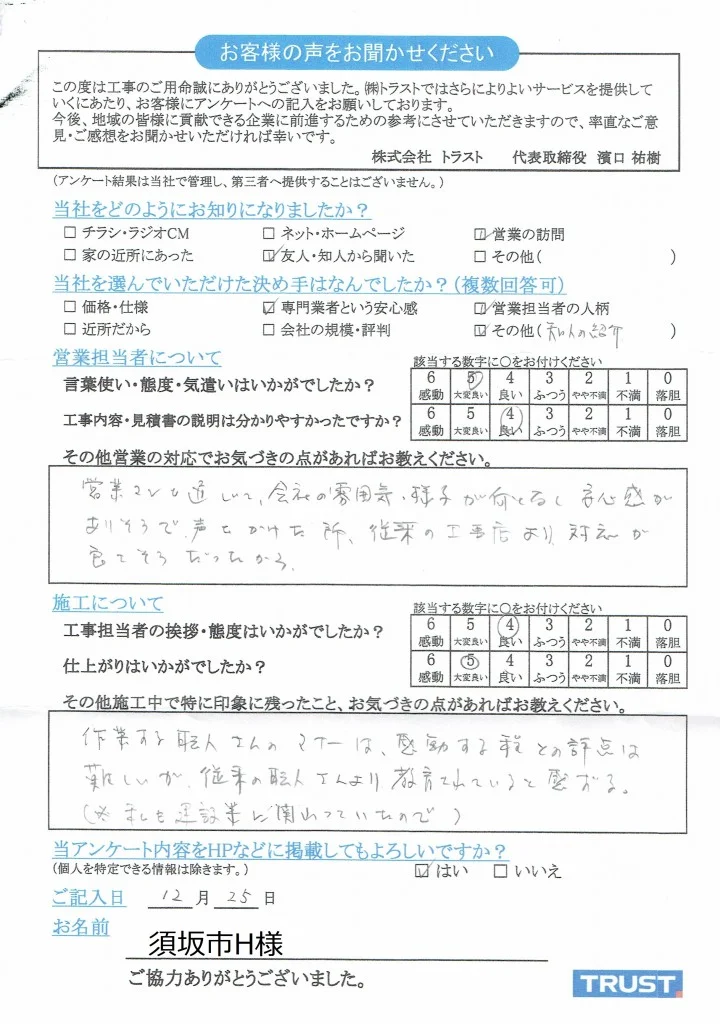 お客様の声をお聞かせください
この度は工事のご用命誠にありがとうございました。㈱トラストではさらによりよいサービスを提供して
いくにあたり、お客様にアンケートへの記入をお願いしております。
今後、地域の皆様に貢献できる企業に前進するための参考にさせていただきますので、率直なご意
見・ご感想をお聞かせいただければ幸いです。
株式会社 トラスト 代表取締役 濱口 祐樹
(アンケート結果は当社で管理し、第三者へ提供することはございません。)
当社をどのようにお知りになりましたか?
□ チラシ・ラジオCM □ ネット・ホームページ ☑ 営業の訪問
□ 家の近所にあった ☑ 友人・知人から聞いた □ その他( )
当社を選んでいただけた決め手はなんでしたか?(複数回答可)
□ 価格・仕様 ☑ 専門業者という安心感 ☑ 営業担当者の人柄
□ 近所だから □ 会社の規模・評判 ☑ その他(知人の紹介 )
営業担当者について 該当する数字に○をお付けください
言葉使い・態度・気遣いはいかがでしたか? 6 5 4 3 2 1 0
感動 大変良い 良い ふつう やや不満 不満 落胆
工事内容・見積書の説明は分かりやすかったですか? 6 5 4 3 2 1 0
感動 大変良い 良い ふつう やや不満 不満 落胆
その他営業の対応でお気づきの点があればお教えください。
営業マンを通して、会社の雰囲気・様子が何となく安心感が
ありそうで、声をかけた所、従来の工事店より、対応が
良さそうだったから。
施工について 該当する数字に○をお付けください
工事担当者の挨拶・態度はいかがでしたか? 6 5 4 3 2 1 0
感動 大変良い 良い ふつう やや不満 不満 落胆
仕上がりはいかがでしたか? 6 5 4 3 2 1 0
感動 大変良い 良い ふつう やや不満 不満 落胆
その他施工中で特に印象に残ったこと、お気づきの点があればお教えください。
作業する職人さんのマナーは、感動する程との評点は
難しいが、従来の職人さんより教育されていると感ずる。
(※私も建設業に関わっていたので)
当アンケート内容をHPなどに掲載してもよろしいですか?
(個人を特定できる情報は除きます。) ☑ はい □ いいえ
ご記入日 12 月 25 日
お名前
須坂市H様
ご協力ありがとうございました。
TRUST.